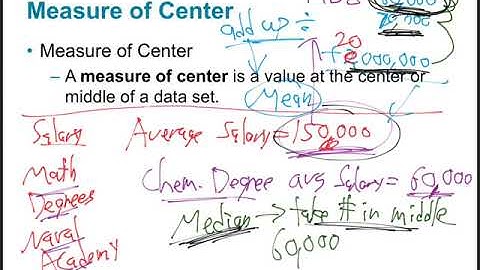 Measure of Center
add up ÷
20
,000,000
• Measure of Center
– A measure of center is a value at the center or
middle of a data set.
Mean
Salary
Average Salary = 150,000
Math
Degrees
Chem. Degree avg Salary = 60,000
Naval
Academy
Median → take # in middle
60,000